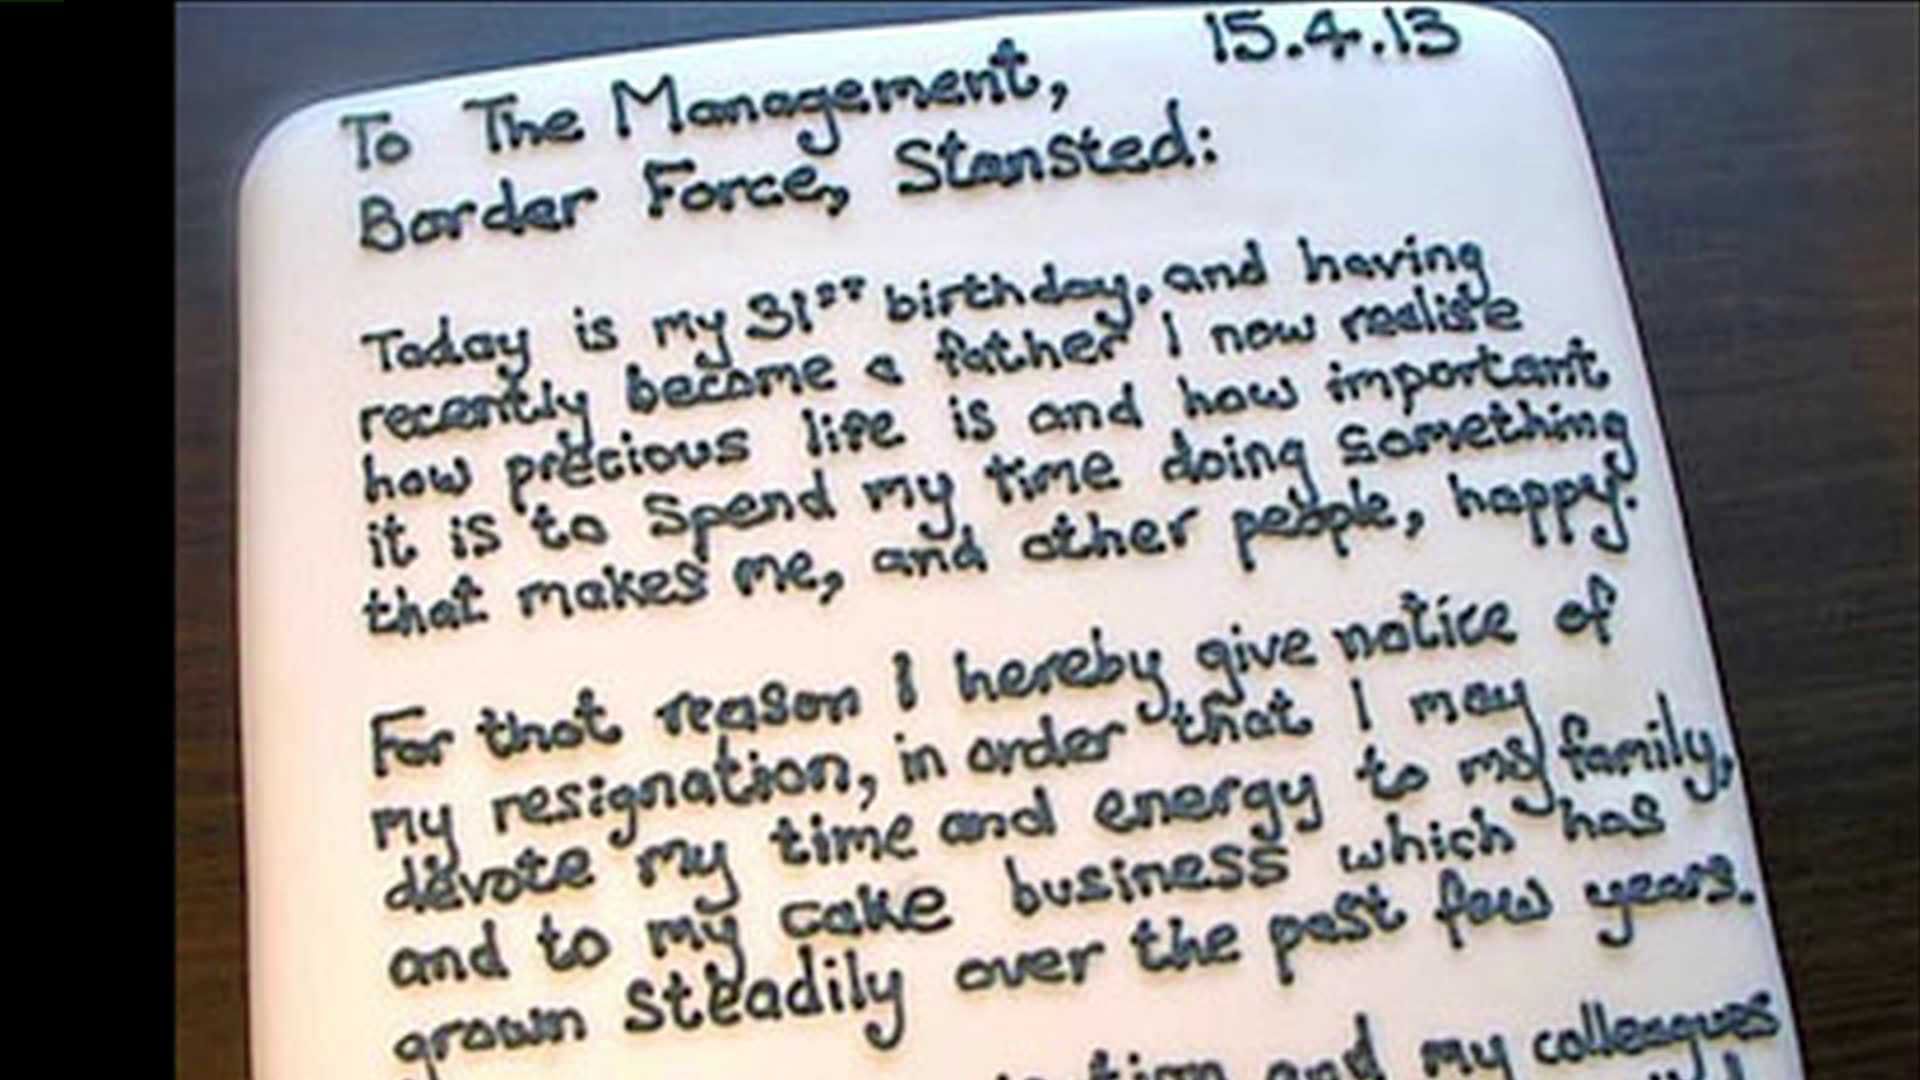 15.4.13
To The Management,
Border Force, Stansted:
Today is my 31st birthday, and having
recently become a father I now realise
how precious life is and how important
it is to spend my time doing something
that makes me, and other people, happy.
For that reason I hereby give notice of
my resignation, in order that I may
devote my time and energy to my family,
and to my cake business which has
grown steadily over the past few years.
and my colleagues